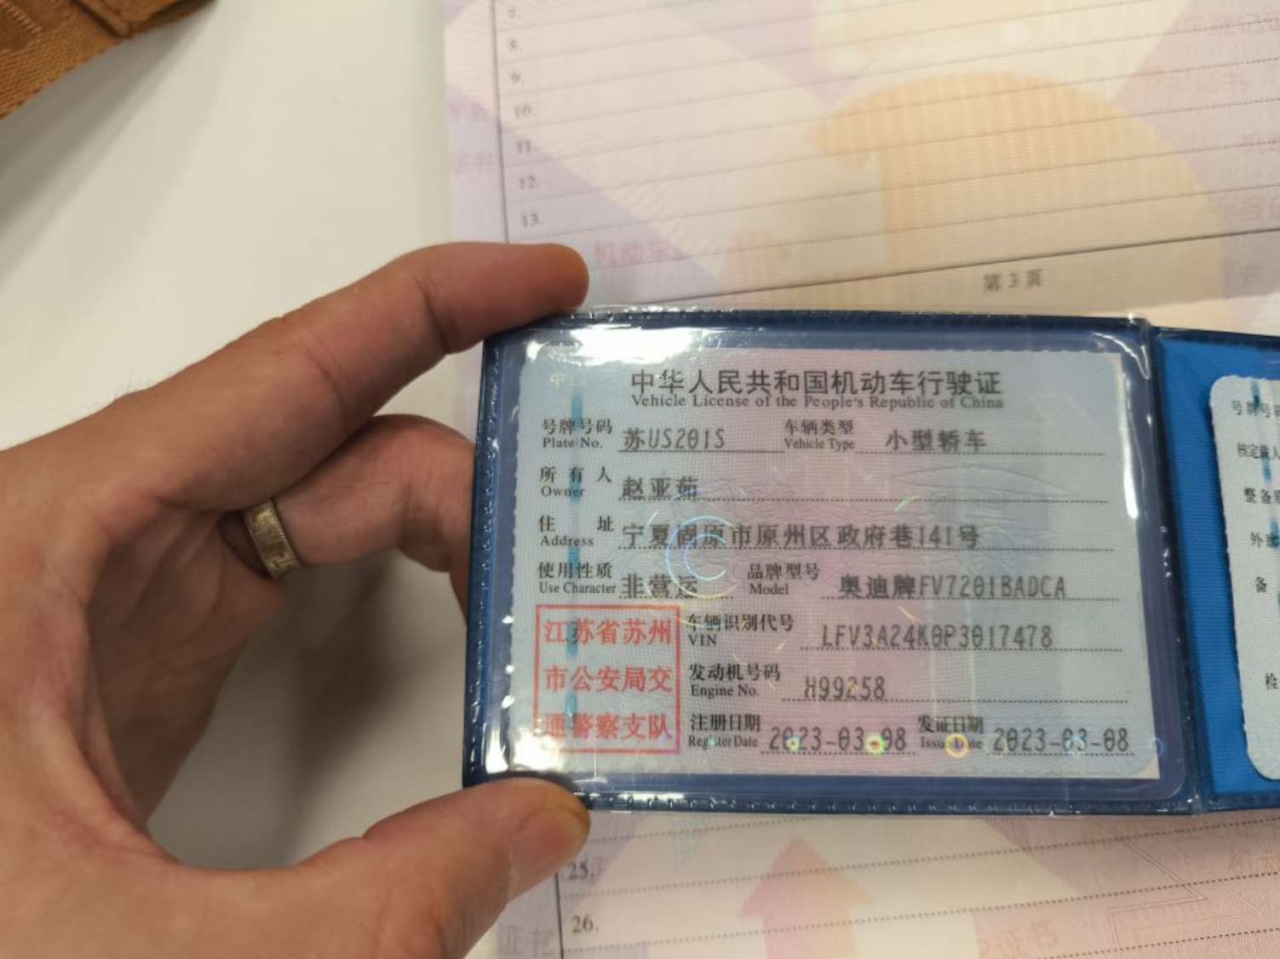 8.
9.
10.
11.
12.
13.
第3页
中华人民共和国机动车行驶证
Vehicle License of the People's Republic of China
号牌号码 苏US201S 车辆类型 小型轿车
Plate No. Vehicle Type
所有人 赵亚茹
Owner
住址 宁夏固原市原州区政府巷141号
Address
使用性质 非营运 品牌型号 奥迪牌FV7201BADCA
Use Character Model
江苏省苏州
市公安局交
通警察支队
车辆识别代号 LFV3A24K0P3017478
VIN
发动机号码 H99258
Engine No.
注册日期 2023-03-08 发证日期 2023-03-08
Register Date Issue Date
号牌号
核定载人
整备
外
备
检
25.
26.
证书